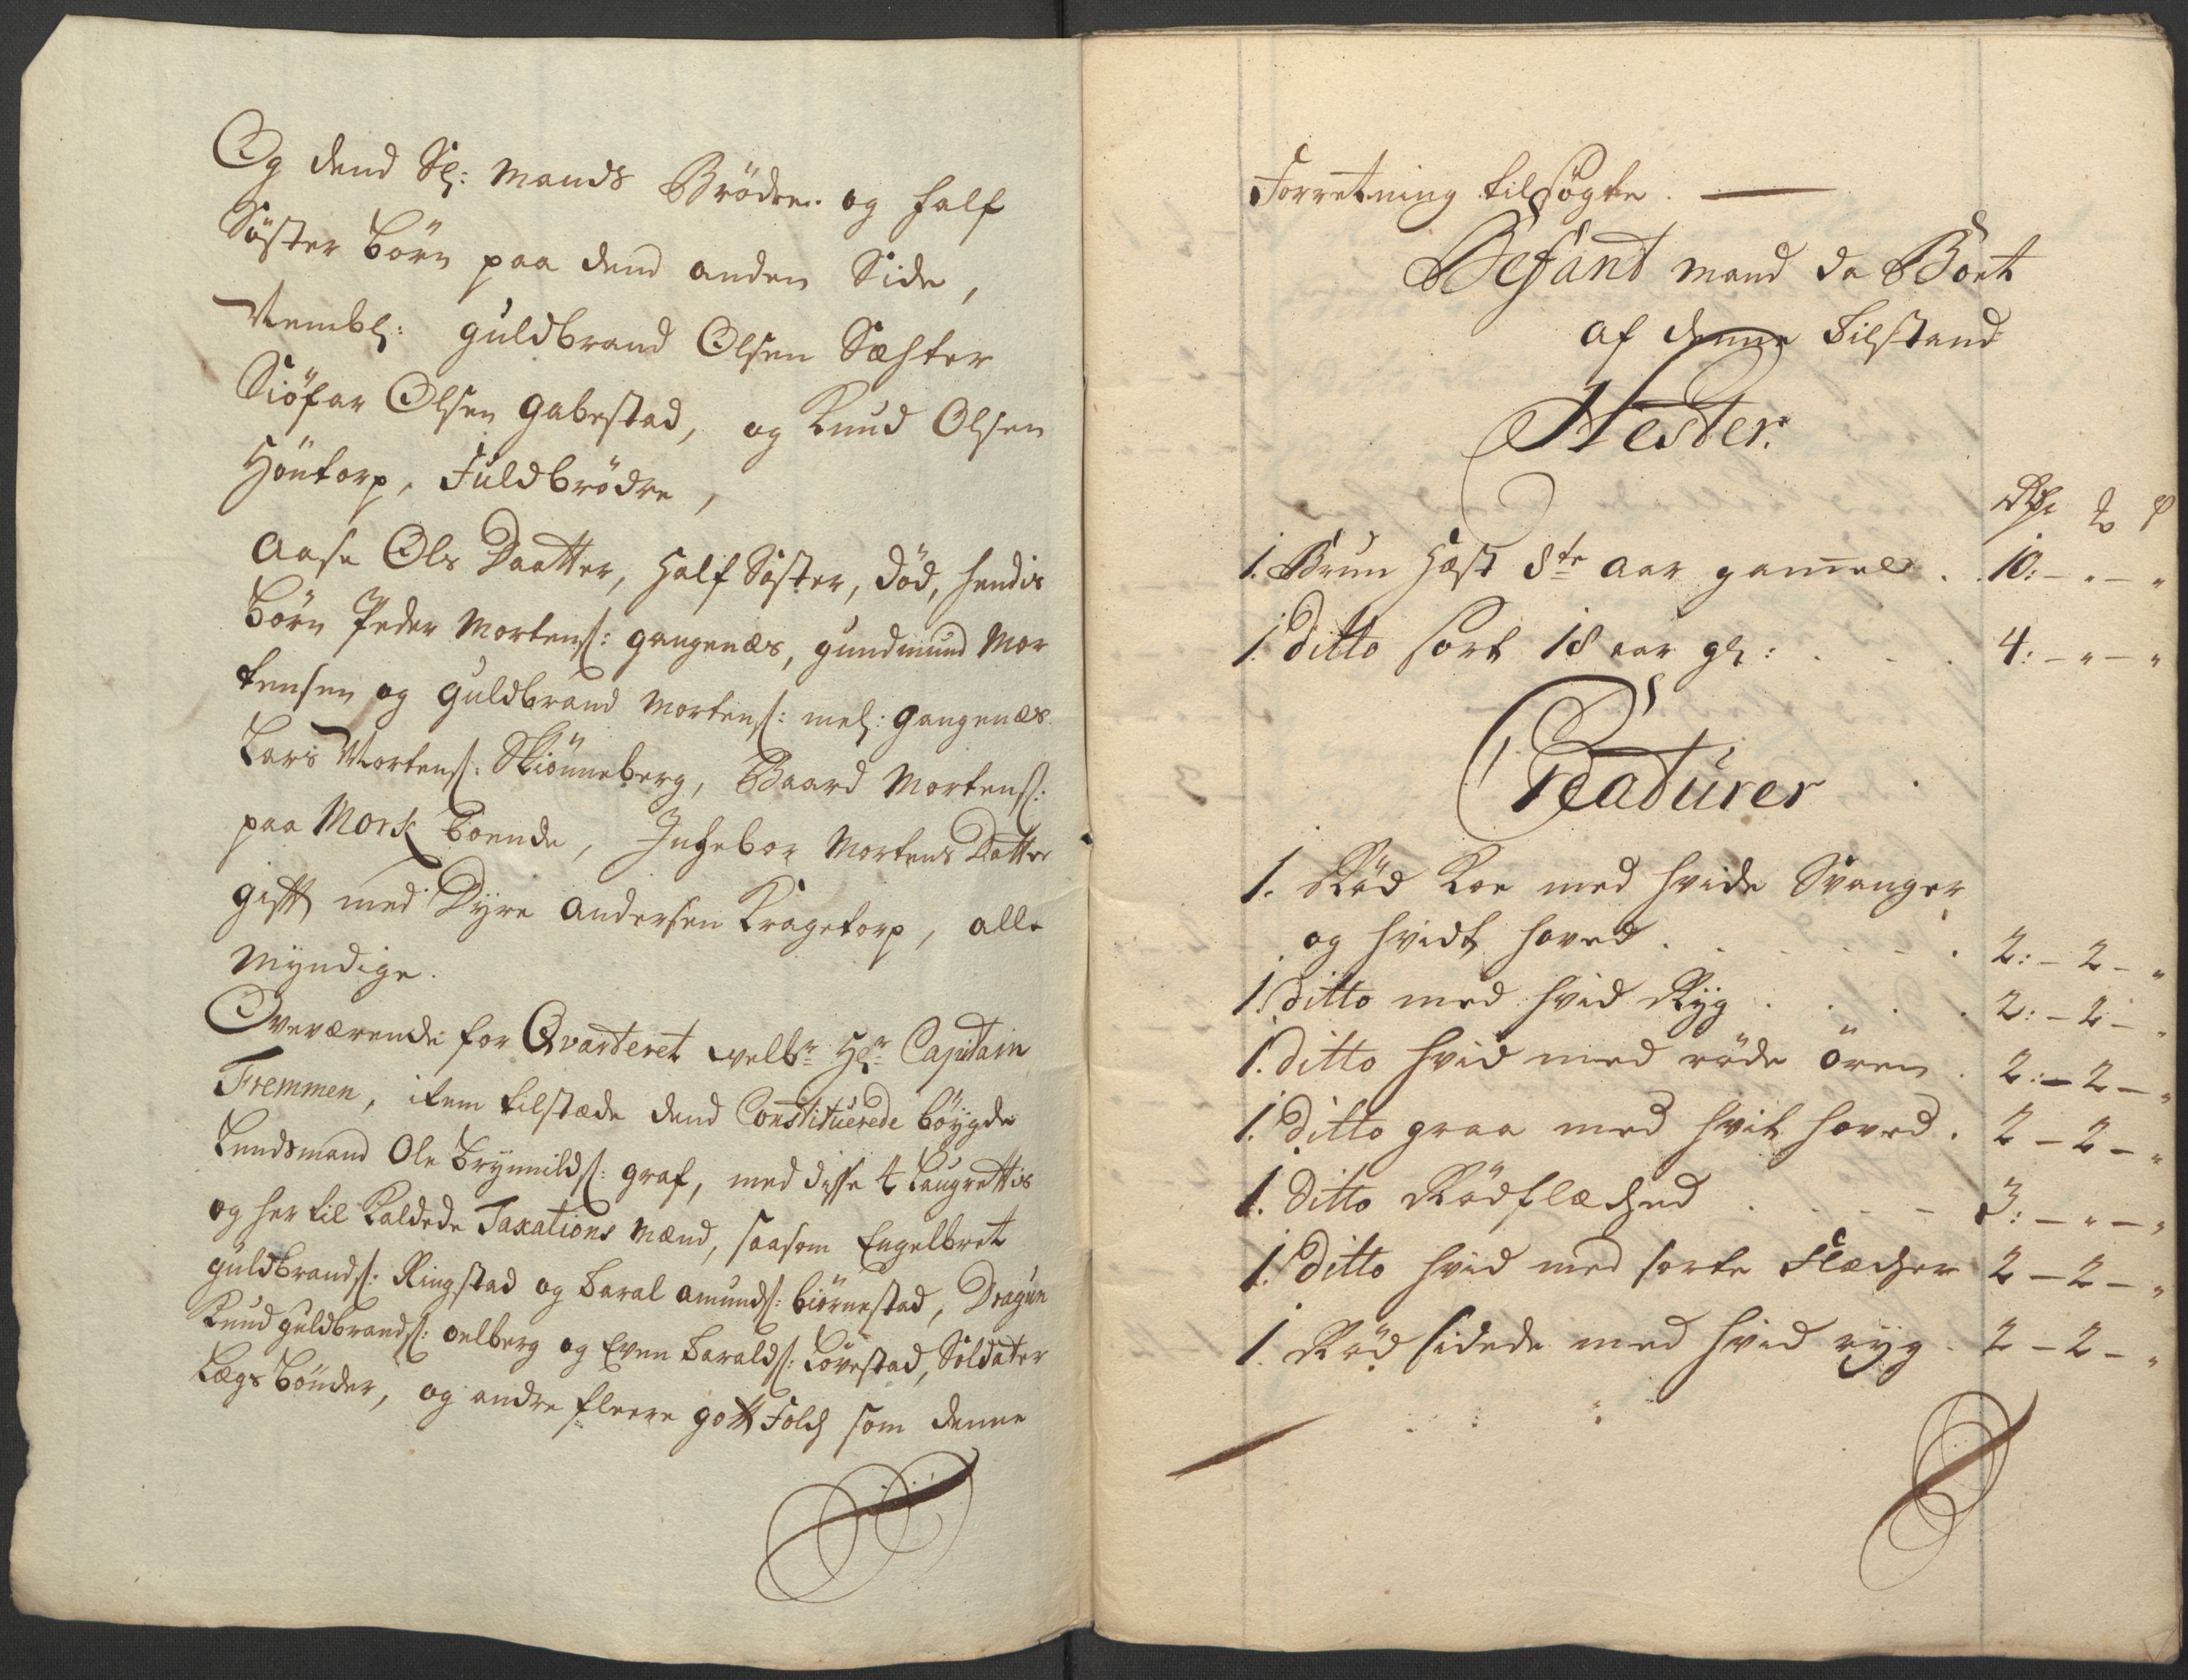 Og dend Sl: Mands Brödre og half
Söster börn paa dend anden Side,
Nembl: Guldbrand Olsen Sæhter
Siöfar Olsen Gabestad, og Knud Olsen
Höntorp, Fuldbrödre,
Aase Ols Daatter, Half Söster, död, hendis
börn Peder Mortens: Gangenæs, Gundmund Mor
tensen og Guldbrand Mortens: mel: Gangenæs.
Lars Mortens: Skiönneberg, Baard Mortens:
paa Mork boende, Ingebor Mortens Datter
gift med Dyre Andersen Kragetorp, alle
Myndige.
Overværende for Qvarteret welbr Hr Capitain
Fremmen, item tilstæde dend Constituerede böygde
Lendsmand Ole Brynnilds: Graf, med disse 4 Laugrettis
og her til Kaldede Taxations Mænd, saasom Engelbret
Guldbrands: Ringstad og Haral Amunds: Biörnestad, Dragun
Knud Guldbrands: Oelberg og Even Haralds: Lövestad, Soldater
Lægs Bönder, og andre fleere gott Folch som denne
Forretning tilsögte.
Befant mand da Boet
af denne Tilstand
Hester.
Rdr ꝥ ß
1. Brun Hest 8te aar gammel . . 10: - " - "
1. ditto sort 18 aar gl: . . . 4: - " - "
Creaturer
1. Röd Koe med hvide Svanger
og hvidt hoved . . . . . 2: - 2 - "
1. ditto med hvid Ryg . . . 2: - 2 - "
1. ditto hvid med röde ören . 2: - 2 - "
1. ditto graa med hvit hoved . 2 - 2 - "
1. ditto Rödflæched . . . 3: - " - "
1. ditto hvid med sorte Flæcher 2 - 2 - "
1. Röd sidede med hvid ryg . 2 - 2 - "